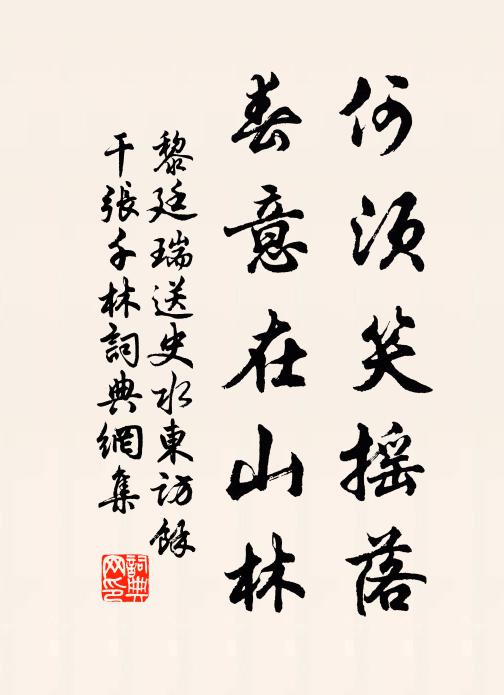 何須笑摇落
春意在山林
黎廷瑞送史水東訪餘
干張千林詞典網集
詞典
网印